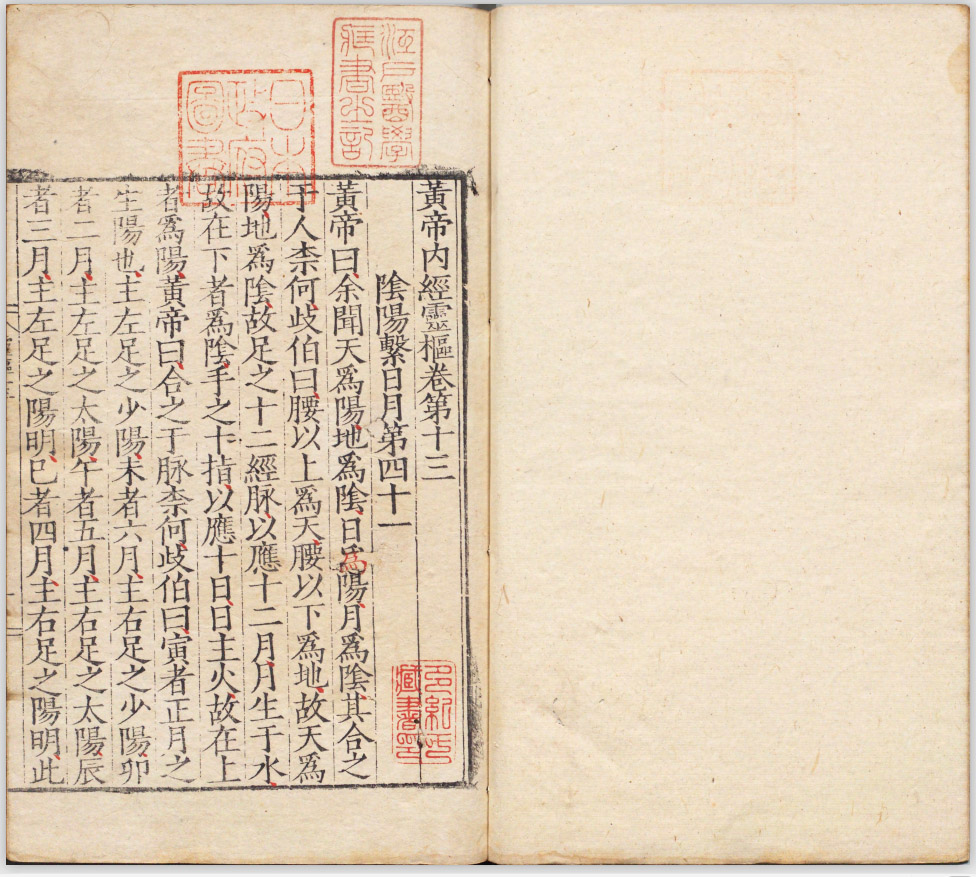 江戸醫學
藏書之記
日本
政府
圖書
黃帝内經靈樞卷第十三
陰陽繫日月第四十一
黃帝曰余聞天爲陽地爲陰日爲陽月爲陰其合之
于人柰何歧伯曰腰以上爲天腰以下爲地故天爲
陽地爲陰故足之十二經脉以應十二月月生于水
故在下者爲陰手之十指以應十日日主火故在上
者爲陽黃帝曰合之于脉柰何歧伯曰寅者正月之
生陽也主左足之少陽未者六月主右足之少陽卯
者二月主左足之太陽午者五月主右足之太陽辰
者三月主左足之陽明巳者四月主右足之陽明此
多紀氏
藏書印